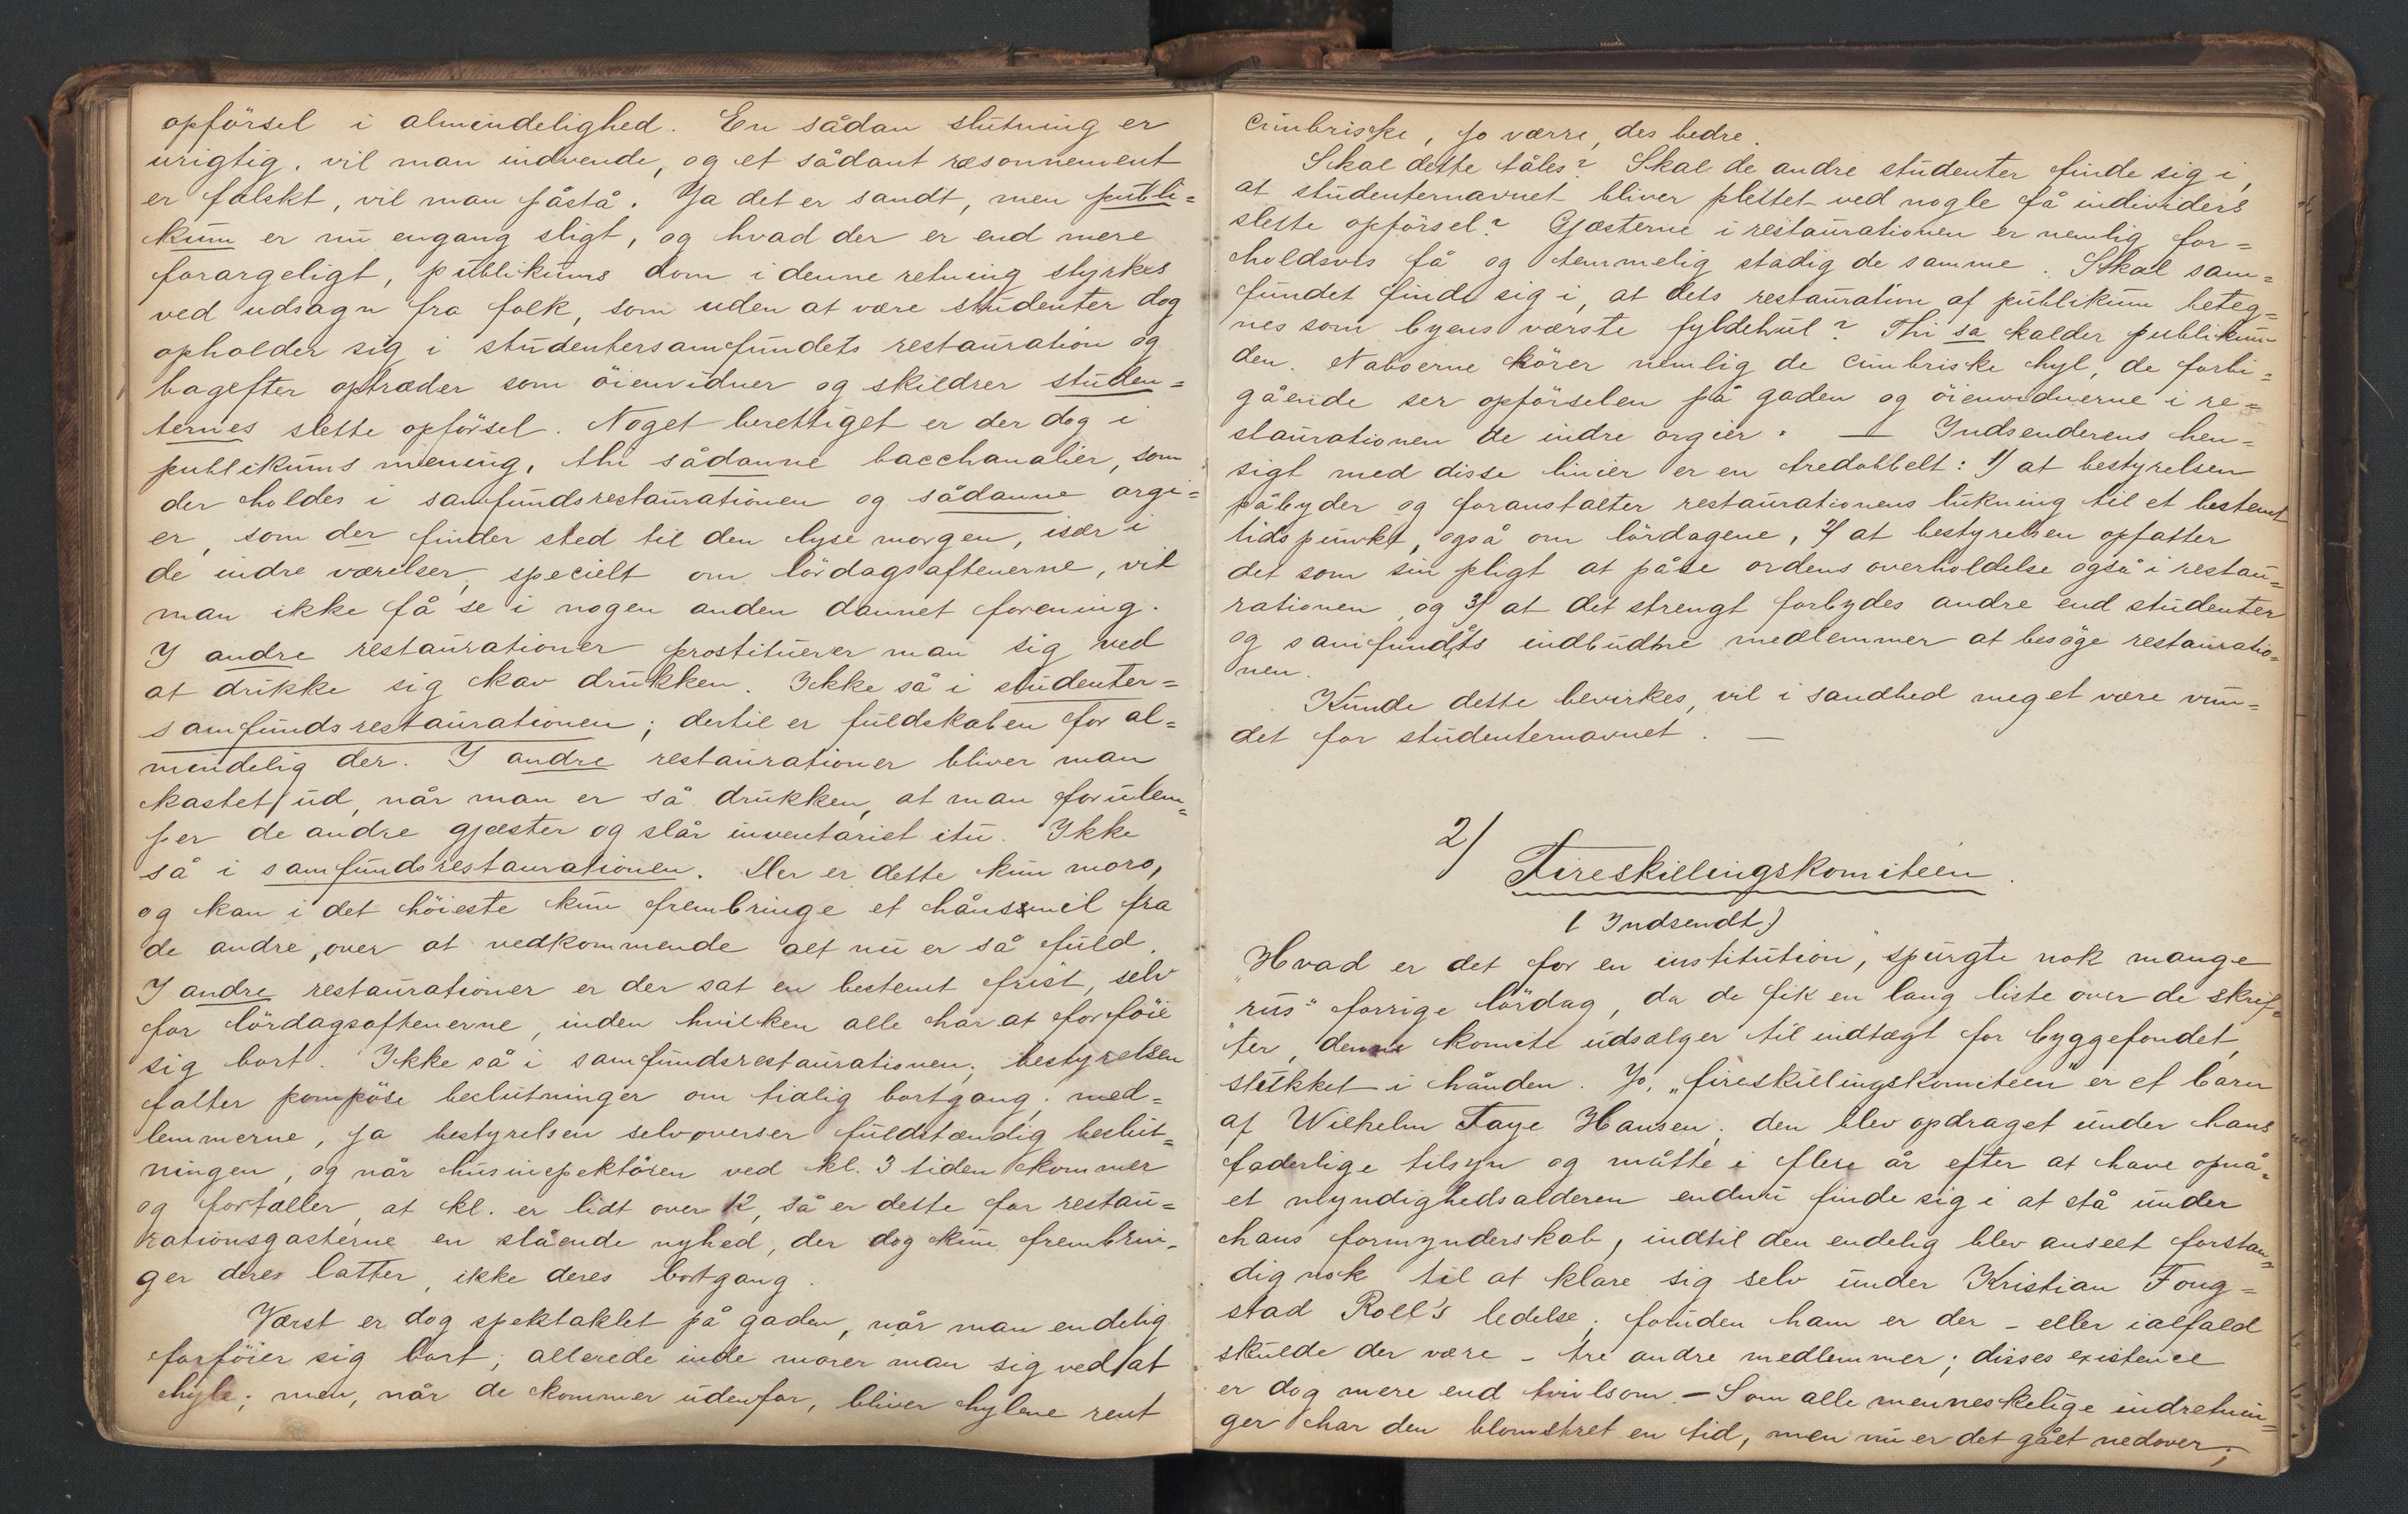 opförsel i almindelighed. En sådan slutning er
urigtig, vil man indvende, og et sådant ræsonnement
er falskt, vil man påstå. Ja det er sandt, men publi=
kum er nu engang sligt, og hvad der er end mere
forargeligt, publikums dom i denne retning styrkes
ved udsagn fra folk, som uden at være studenter dog
opholder sig i studentersamfundets restauration og
bagefter optræder som öienvidner og skildrer studen=
ternes slette opförsel. Noget berettiget er der dog i
publikums mening, thi sådanne bacchanalier, som
der holdes i samfundsrestaurationen og sådanne orgi=
er, som der finder sted til den lyse morgen, især i
de indre værelser, specielt om lördagsaftenerne, vil
man ikke få se i nogen anden dannet forening.
I andre restaurationer prostituerer man sig ved
at drikke sig kav drukken. Ikke så i studenter=
samfundsrestaurationen; dertil er fuldskaben for al=
mindelig der. I andre restaurationer bliver man
kastet ud, når man er så drukken, at man forulem=
per de andre gjæster og slår inventariet itu. Ikke
så i samfundsrestaurationen. Her er dette kun moro,
og kan i det höieste kun frembringe et hånsmil fra
de andre, over at vedkommende alt nu er så fuld.
I andre restaurationer er der sat en bestemt frist, selv
for lördagsaftenerne, inden hvilken alle har at forföie
sig bort. Ikke så i samfundsrestaurationen; bestyrelsen
fatter pompöse beslutninger om tidlig bortgang; med=
lemmerne, ja bestyrelsen selv overser fuldstændig beslut=
ningen, og når husinspektören ved kl. 3 tiden kommer
og fortæller, at kl. er lidt over 12, så er dette for restau=
rationsgæsterne en slående nyhed, der dog kun frembrin=
ger deres latter, ikke deres bortgang.
Værst er dog spektaklet på gaden, når man endelig
forföier sig bort; allerede inde morer man sig ved at
hyle; men, når de kommer udenfor, bliver hylene rent
cimbriske, jo værre, des bedre.
Skal dette tåles? Skal de andre studenter finde sig i,
at studenternavnet bliver plettet ved nogle få individers
slette opförsel? Gjæsterne i restaurationen er nemlig for=
holdsvis få og temmelig stadig de samme. Skal sam=
fundet finde sig i, at dets restauration af publikum beteg=
nes som byens værste fyldehul? Thi så kalder publikum
den. Naboerne hörer nemlig de cimbriske hyl, de forbi=
gående ser opförselen på gaden og öienvidnerne i re=
staurationen de indre orgier. — Indsenderens hen=
sigt med disse linier er en tredobbelt: 1/ at bestyrelsen
påbyder og foranstalter restaurationens lukning til et bestemt
tidspunkt, også om lördagene, 2/ at bestyrelsen opfatter
det som sin pligt at påse ordens overholdelse også i restau=
rationen, og 3/ at det strengt forbydes andre end studenter
og samfundets indbudne medlemmer at besöge restauratio=
nen.
Kunde dette bevirkes, vil i sandhed meget være vun=
det for studenternavnet. —
2/
Fireskillingskomiteen.
(Indsendt.)
„Hvad er det for en institution,” spurgte nok mange
„rus” forrige lördag, da de fik en lang liste over de skrif=
ter, denne komite udsælger til indtægt for byggefondet,
stukket i hånden. Jo, „fireskillingskomiteen” er et barn
af Wilhelm Faye Hansen; den blev opdraget under hans
faderlige tilsyn og måtte i flere år efter at have opnå=
et myndighedsalderen endnu finde sig i at stå under
hans formynderskab, indtil den endelig blev anseet forstan=
dig nok til at klare sig selv under Kristian Foug=
stad Roll's ledelse; foruden ham er der – eller ialfald
skulde der være – tre andre medlemmer; disses existence
er dog mere end tvivlsom. — Som alle menneskelige indretnin=
ger har den blomstret en tid, men nu er det gået nedover;